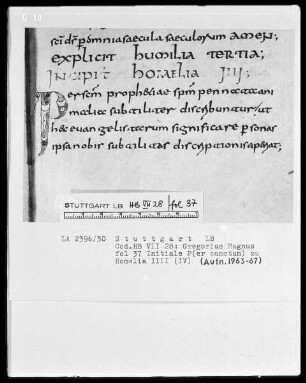 seİ dſ p omnia saecula saeculorum amen;
explicit humilia tertia;
Incipit homelia IIII;
Per scm propheliae spm pennata ani
malia subtiliter describuntur, ut
haec evangelistarum significare personas
ipsa nobis subtilitas descriptionis aperiat;
STUTTGART LB HB VII 28 fol 37
LA 2396/30 Stuttgart LB
Cod.HB VII 28: Gregorius Magnus
fol 37 Initiale P(er sanctum) zu
Homelia IIII (IV) (Aufn.1963-67)